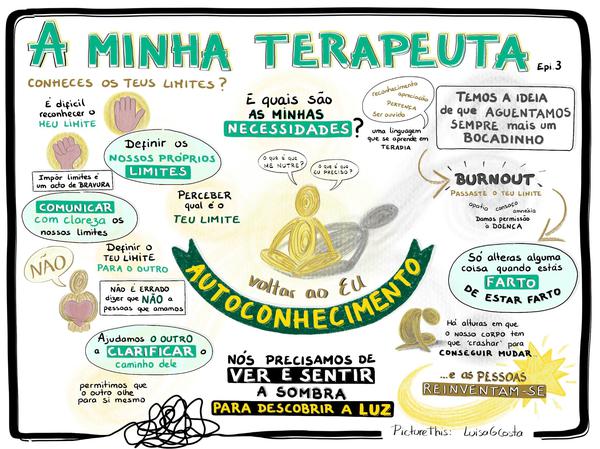 A MINHA TERAPEUTA
Epi.3
CONHECES OS TEUS LIMITES?
É difícil
reconhecer o
MEU LIMITE
Definir os
NOSSOS PRÓPRIOS
LIMITES
Impôr limites é
um acto de BRAVURA
COMUNICAR
com clareza os
nossos limites
PERCEBER
qual é o
TEU LIMITE
Definir o
TEU LIMITE
PARA O OUTRO
NÃO
NÃO É ERRADO
dizer que NÃO a
pessoas que amamos
Ajudamos O OUTRO
a CLARIFICAR o
caminho dele
permitimos que
o outro olhe
para si mesmo
E quais são
AS MINHAS
NECESSIDADES?
reconhecimento
apreciação
PERTENÇA
Ser ouvido
uma linguagem
que se aprende em
TERAPIA
O que é que
ME NUTRE?
O que é que
EU PRECISO?
voltar ao EU
AUTOCONHECIMENTO
NÓS PRECISAMOS DE
VER E SENTIR
A SOMBRA
PARA DESCOBRIR A LUZ
TEMOS A IDEIA
de que AGUENTAMOS
SEMPRE mais um
BOCADINHO
BURNOUT
PASSASTE O TEU LIMITE
apatia cansaço amnésia
Damos permissão
à DOENÇA
Só alteras alguma
coisa quando estás
FARTO
DE ESTAR FARTO
Há alturas em que
o nosso CORPO tem
que 'crashar' para
CONSEGUIR MUDAR
...e as PESSOAS
REINVENTAM-SE
PictureThis: LuisaGCosta